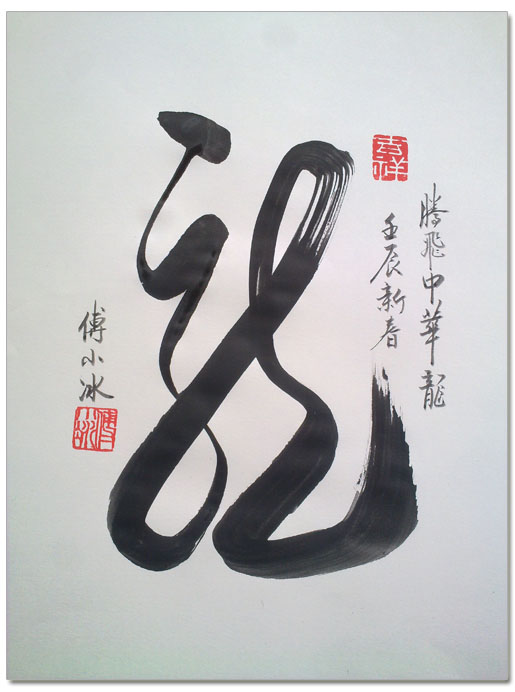 騰飛中華龍
壬辰新春
龍
傅小冰